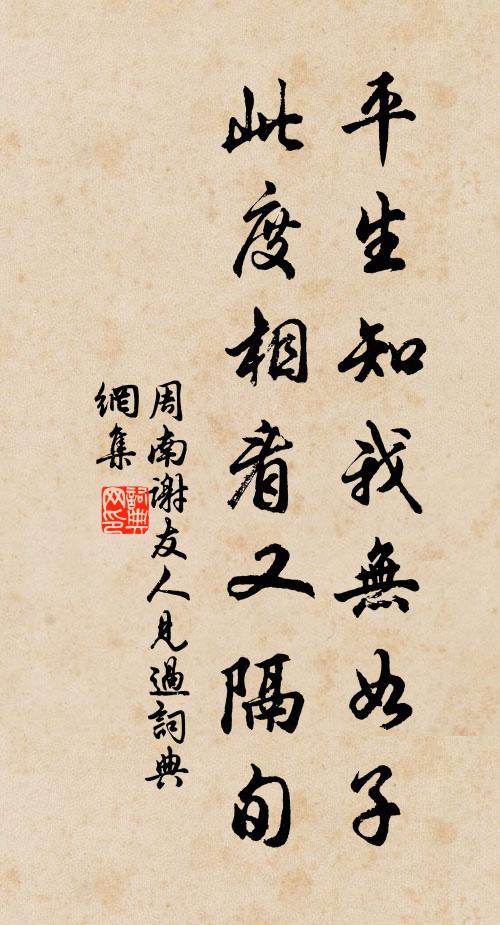 平生知我無如子
此度相看又隔旬
周南謝友人見過詞典
網集
詞典
网印